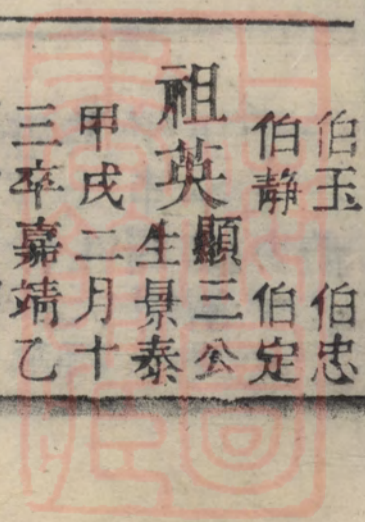 伯玉 伯忠
伯靜 伯定
祖英
顯三公
生景泰
甲戌二月十
三卒嘉靖乙